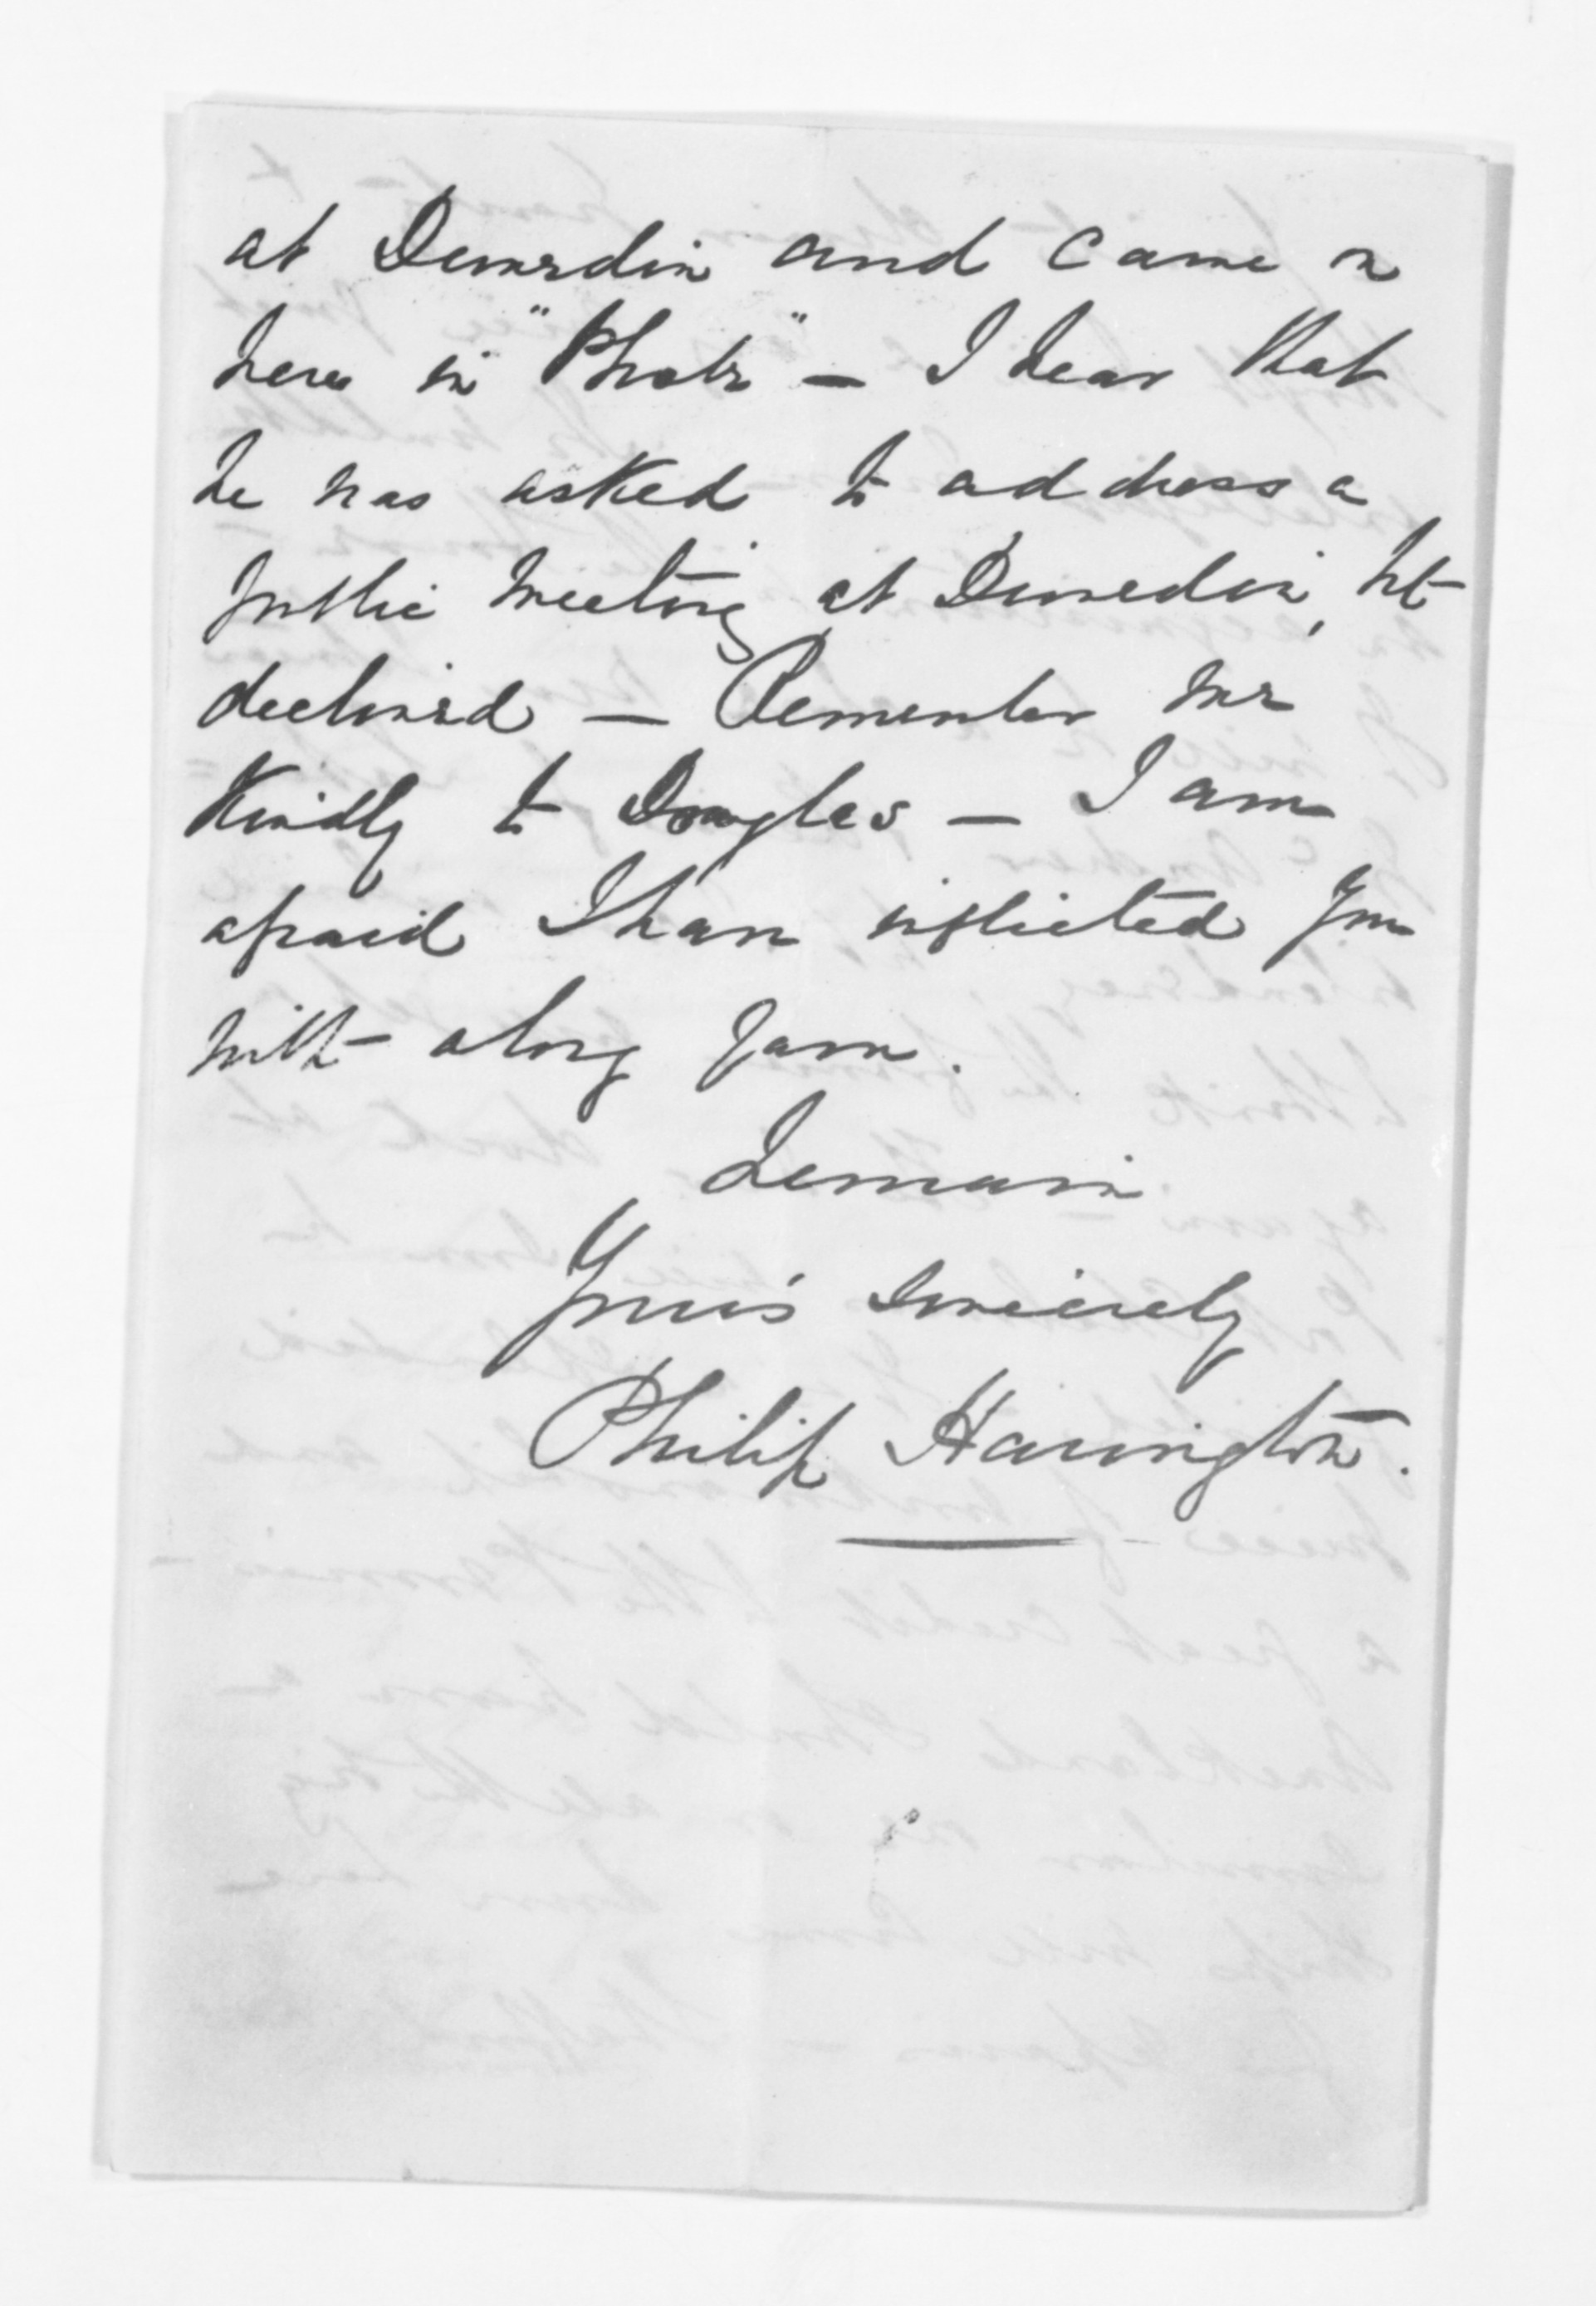 at Dunedin and came on
here in "Phoebe" — I hear that
he was asked to address a
public meeting at Dunedin, but
declined — Remember me
Kindly to Douglas — I am
afraid I have inflicted you
with a long yarn.
Remain
Yours sincerely
Philip Harington.